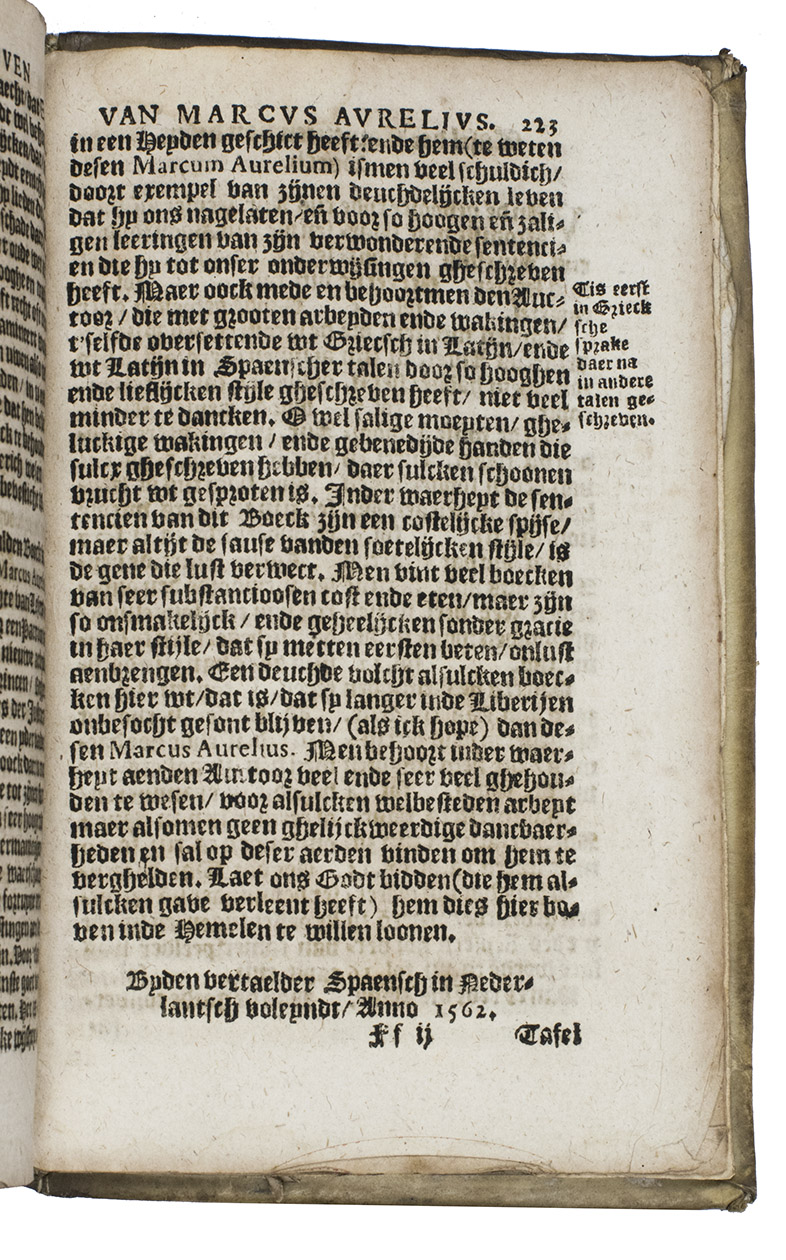 VAN MARCVS AVRELIVS. 223
in een Heyden geschict heeft: ende hem (te weten
desen Marcum Aurelium) ismen veel schuldich/
doort exempel van zijnen deuchdelijcken leven
dat hy ons nagelaten/eñ voor so hoogen eñ zali-
gen leeringen van zijn verwonderende sentenci-
en die hy tot onser onderwijsingen gheschreven
heeft. Maer oock mede en behoortmen den Auc-
toor / die met grooten arbeyden ende wakingen/
t'selfde oversettende wt Griecsch in Latijn/ende
wt Latijn in Spaenscher talen door so hooghen
ende lieflijcken stijle gheschreven heeft/ niet veel
minder te dancken. O wel salige moeyten/ ghe-
luckige wakingen / ende gebenedijde handen die
sulcx gheschreven hebben/ daer sulcken schoonen
vrucht wt gesproten is. Inder waerheyt de sen-
tencien van dit Boeck zijn een costelijcke spijse/
maer altijt de sause vanden soetelijcken stijle/ is
de gene die lust verwect. Men vint veel boecken
van seer substantioosen cost ende eten/maer zijn
so onsmakelijck / ende geheelijcken sonder gracie
in haer stijle/ dat sy metten eersten beten/onlust
aenbrengen. Een deuchde volcht alsulcken boec-
ken hier wt/dat is/dat sy langer inde Liberijen
onbesocht gesont blijven/ (als ick hope) dan de-
sen Marcus Aurelius. Men behoort inder waer-
heyt aenden Autoor veel ende seer veel ghehou-
den te wesen/ voor alsulcken welbesteden arbeyt
maer alsomen geen ghelijckweerdige dancbaer-
heden en sal op deser aerden vinden om hem te
verghelden. Laet ons Godt bidden (die hem al-
sulcken gave verleent heeft) hem dies hier bo-
ven inde Hemelen te willen loonen.
Tis eerst
in Grieck
sche
sprake
daer na
in andere
talen ge-
schreven.
Byden vertaelder Spaensch in Neder-
lantsch voleyndt/ Anno 1562.
Ff ij Tafel